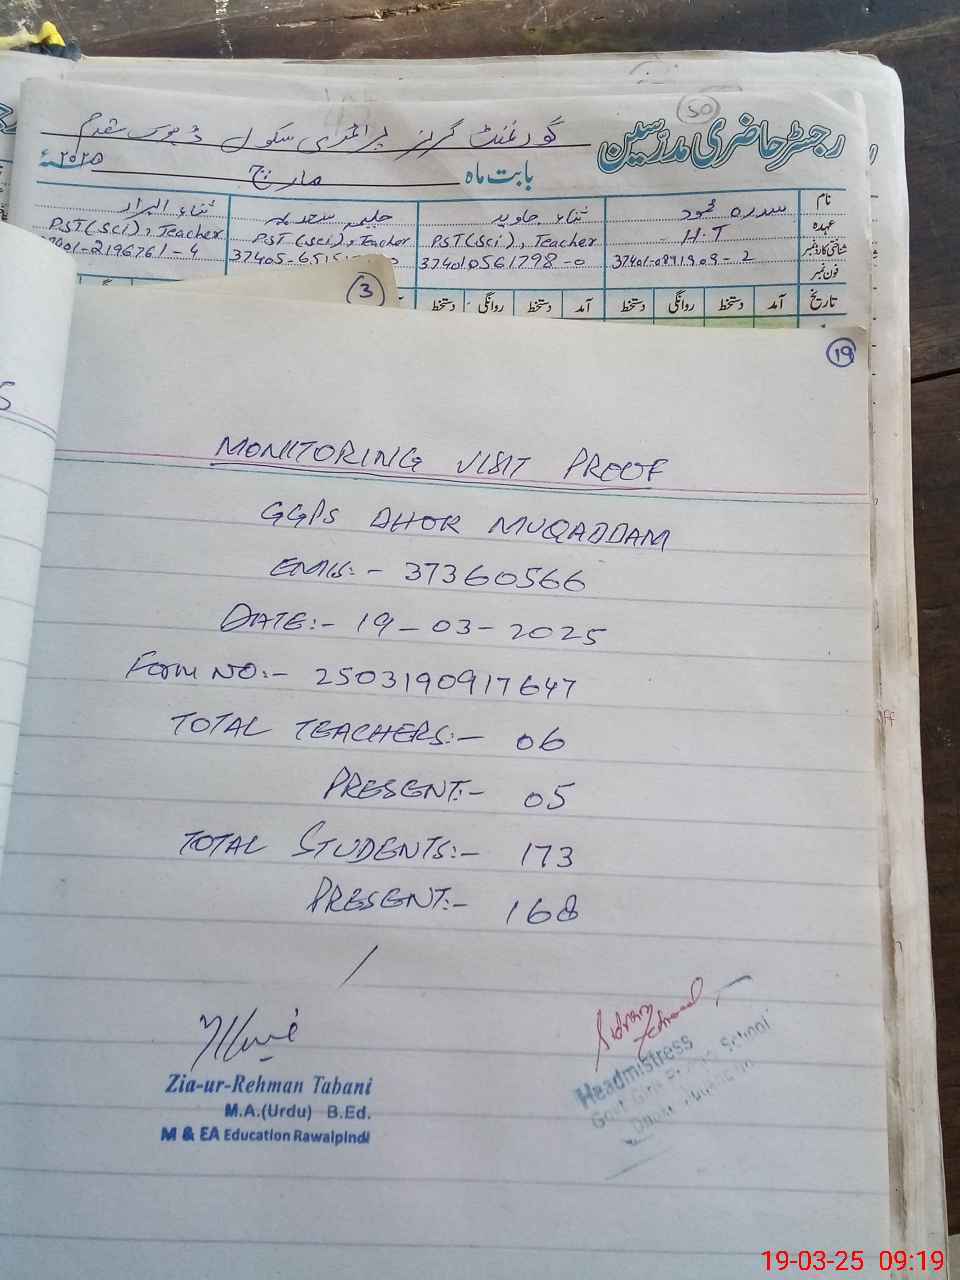 50
رجسٹر حاضری مدرسین
گورنمنٹ گرلز پرائمری سکول ڈہوک مقدم
بابت ماہ مارچ ۲۰۲۵ء
نام سدرہ محمود ثناء جاوید حلیمہ سعدیہ ثناء البرار
عہدہ H.T PST(Sci), Teacher PST(Sci), Teacher PST(Sci), Teacher
شناختی کارڈ نمبر 37401-0891909-2 374010561798-0
فون نمبر
تاریخ آمد دستخط روانگی دستخط آمد دستخط روانگی دستخط
3
19
MONITORING VISIT PROOF
GGPS DHOK MUQADDAM
EMIS:- 37360566
DATE:- 19-03-2025
Form NO:- 2503190917647
TOTAL TEACHERS:- 06
PRESENT:- 05
TOTAL STUDENTS:- 173
PRESENT:- 168
Zia-ur-Rehman Tabani
M.A.(Urdu) B.Ed.
M & EA Education Rawalpindi
Sidrah Mahmood
Headmistress
Govt Girls Primary School
19-03-25 09:19